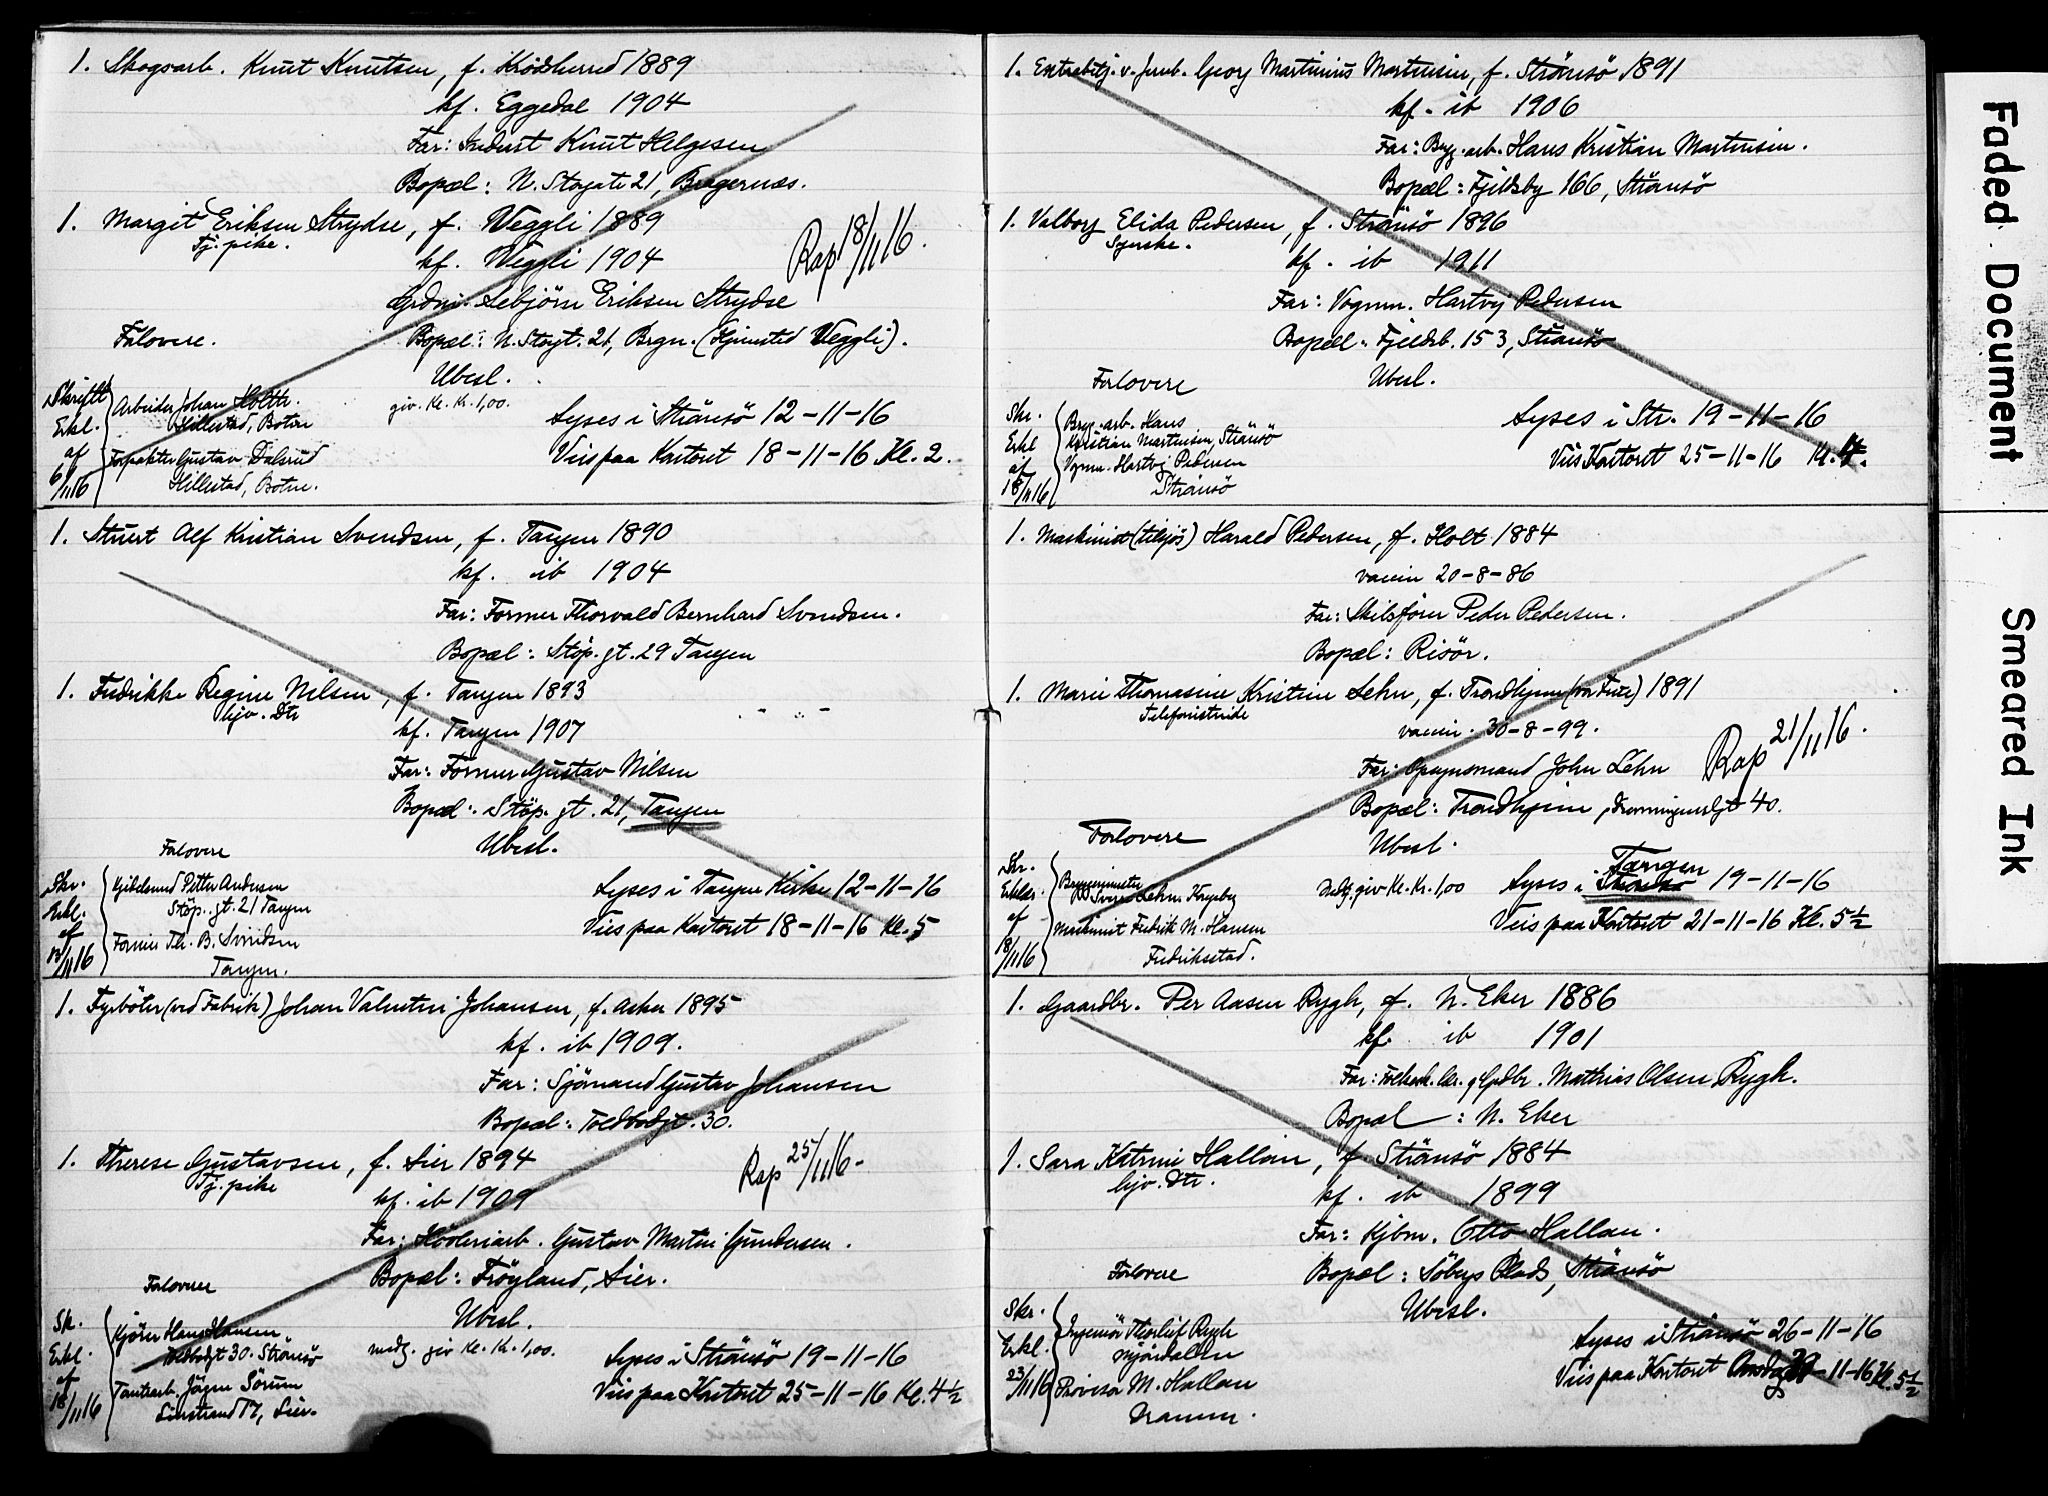 1. Skogsarb. Knut Knutsen, f. Krödsherred 1889
kf. Eggedal 1904
Far: Inderst Knut Helgesen
Bopæl: N. Storgate 21, Bragernæs.
1. Margit Eriksen Strydse, f. Veggli 1889
Tj. pike.
kf. Veggli 1904
Rap 18/11 16.
Grdm. Sebjörn Eriksen Strydse
Forlovere.
Bopæl: N. Storgt. 21, Brgn. (Hjemsted Veggli).
Ubesl.
giv. Kl. Kr. 1,00.
Skriftl. Erkl. af 6/11 16
Arbeider Johan Holtte.
Hillestad, Botne
Forpakter Gustav Dalsrud
Hillestad, Botne.
Lyses i Strömsö 12-11-16
Vies paa Kontoret 18-11-16 Kl. 2.
1. Stuert Alf Kristian Svendsen, f. Tangen 1890
kf. ib 1904
Far: Former Thorvald Bernhard Svendsen.
Bopæl: Stöp. gt. 29 Tangen
1. Fredrikke Regine Nilsen, f. Tangen 1893
hjv. Dtr
kf. Tangen 1907
Far: Former Gustav Nilsen
Bopæl: Stöp. gt. 21, Tangen
Forlovere
Ubesl.
Skr. Erkl. af 10/11 16
Kjedelsmed Petter Andersen
Stöp. gt. 21 Tangen
Former Th. B. Svendsen
Tangen.
Lyses i Tangen Kirke 12-11-16
Vies paa Kontoret 18-11-16 Kl. 5
1. Fyrböter (ved Fabrik) Johan Valentin Johansen, f. Asker 1895
kf. ib 1909.
Far: Sjömand Gustav Johansen
Bopæl: Toldbodgt. 30.
1. Therese Gustavsen, f. Lier 1894
Tj. pike
kf. ib 1909
Rap 25/11 16-
Far: Hövleriarb. Gustav Martin Gundersen.
Bopæl: Fröyland, Lier.
Forlovere
Ubesl.
medg. giv Kl. Kr. 1,00.
Sk. Erkl. af 18/11 16
Kjörer Hans Hansen
Toldbodgt 30. Strömsö
Tomtearb. Jörgen Sörum
Linstrand 17, Lier.
Lyses i Strömsö 19-11-16
Vies paa Kontoret 25-11-16 Kl. 4½
1. Extrabetj. v. Jernb. Georg Martinius Martinsen, f. Strömsö 1891
kf. ib 1906
Far: Bryg. arb. Hans Kristian Martinsen.
Bopæl: Fjeldsby 166, Strömsö
1. Valborg Elida Pedersen, f. Strömsö 1896
Syerske.
kf. ib 1911
Far: Vognm. Hartvig Pedersen
Bopæl: Fjeldsb. 153, Strömsö
Forlovere
Ubesl.
Skr. Erkl af 18/11 16
Bryg. arb. Hans
Kristian Martinsen, Strömsö
Vognm. Hartvig Pedersen
Strömsö
Lyses i Str. 19-11-16
Vies Kontoret 25-11-16 Kl. 4.
1. Maskinist (tilsjös) Harald Pedersen, f. Holt 1884
vaccin 20-8-86
Far: Skibsförer Peder Pedersen.
Bopæl: Risör.
1. Marie Thomasine Kristine Lehn, f. Trondhjem (vor Frue) 1891
Telefonistinde
vaccin. 30-8-99.
Rap 21/11 16.
Far: Opsynsmand John Lehn
Bopæl: Trondhjem, Dronningensgt 40.
Forlovere
Ubesl.
Skr. Erklær. af 18/11 16
Byggmester
Sverre Lehn Kongsberg
Maskinist Fredrik M. Hansen
Fredriksstad.
Medg. giv Kl. Kr. 1,00
Lyses i Strömsö Tangen 19-11-16
Vies paa Kontoret 21-11-16 Kl. 5½
1. Gaardbr. Per Aasen Rygh, f. N. Eker 1886
kf. ib 1901
Far: Folkesk. lær. og Grdbr. Mathias Olsen Rygh.
Bopæl: N. Eker
1. Sara Katrine Hallan, f. Strömsö 1884
hjv. Dtr.
kf. ib 1899
Far: Kjbm. Otto Hallan.
Forlovere
Bopæl: Söbergs Plads, Strömsö
Ubesl.
Skr. Erkl. 23/11 16
Ingeniör Thorleif Rygh
Mjöndalen
Provisor M. Hallan
Drammen.
Lyses i Strömsö 26-11-16
Vies paa Kontoret Onsdag 29-11-16 Kl. 5½
Faded Document
Smeared Ink